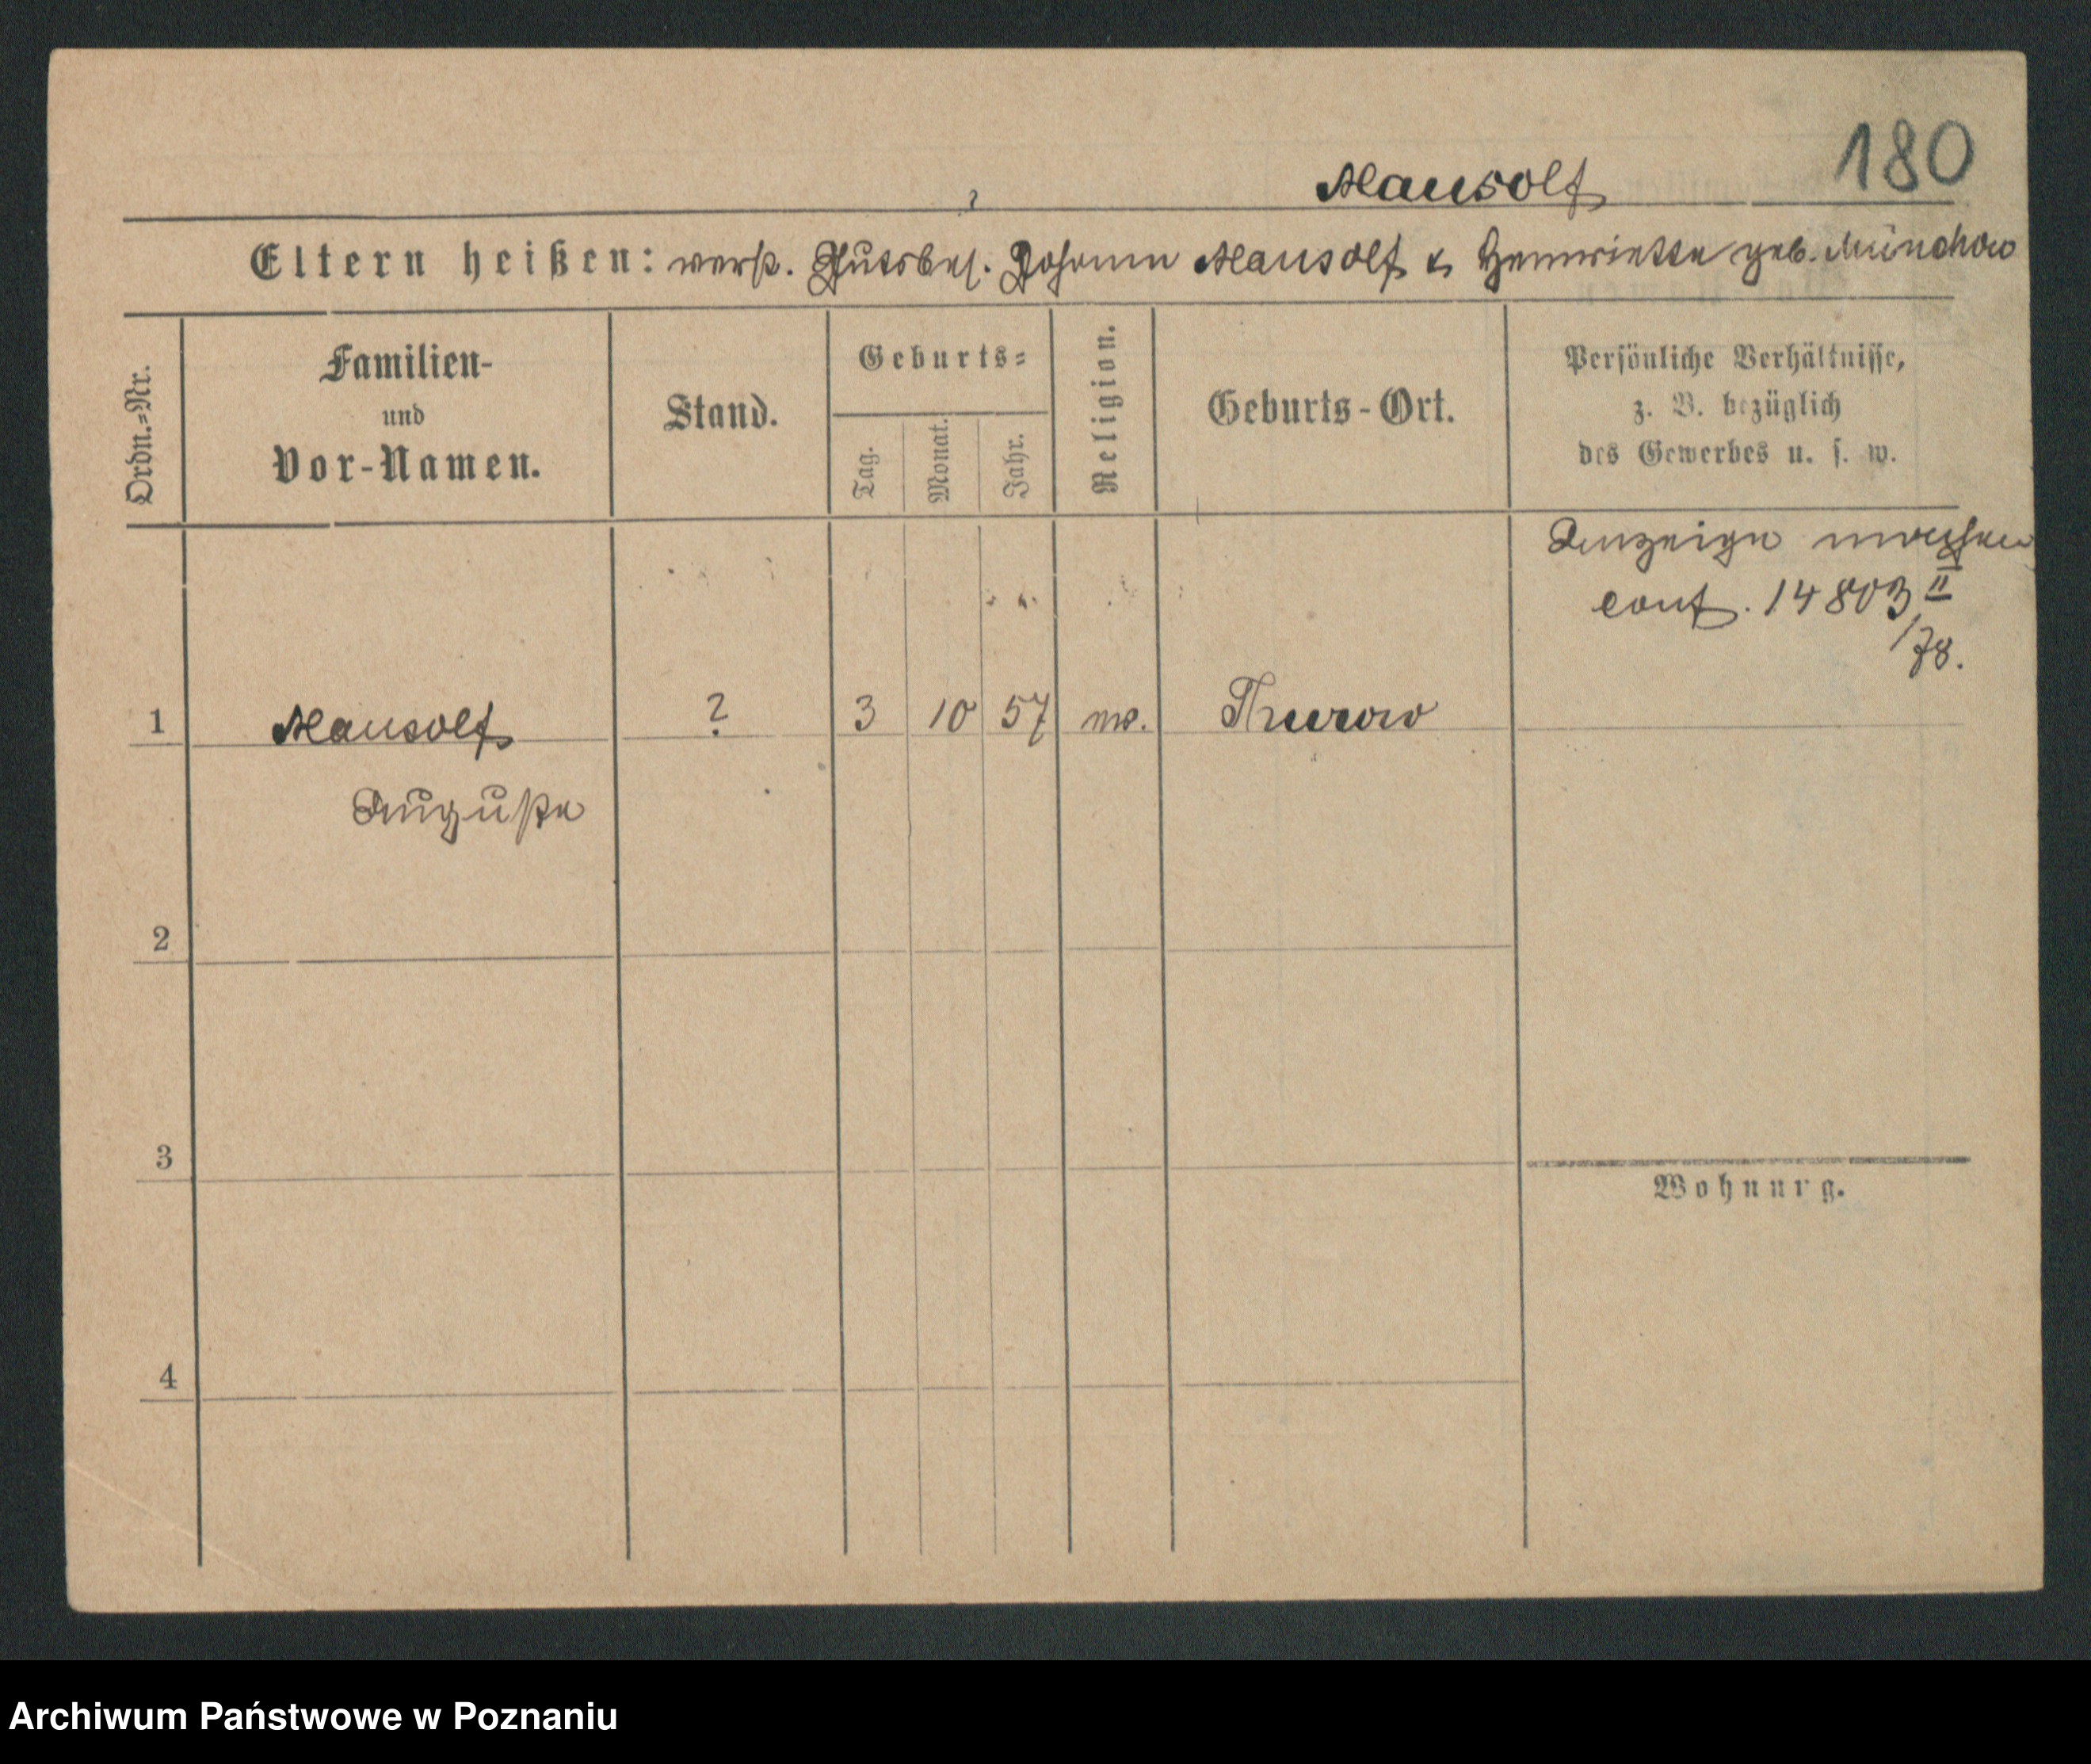 180
Mausolf
?
Eltern heißen: verst. Gutsbes. Johann Mausolf & Henriette geb. Münchow
Ordn.=Nr.
Familien-
und
Vor-Namen.
Stand.
Geburts=
Tag.
Monat.
Jahr.
Religion.
Geburts-Ort.
Persönliche Verhältnisse,
z. B. bezüglich
des Gewerbes u. s. w.
Anzeige machen
conf. 14803 II
/78.
1 Mausolf ? 3 10 57 ev. Thurow
Auguste
2
3
Wohnung.
4
Archiwum Państwowe w Poznaniu